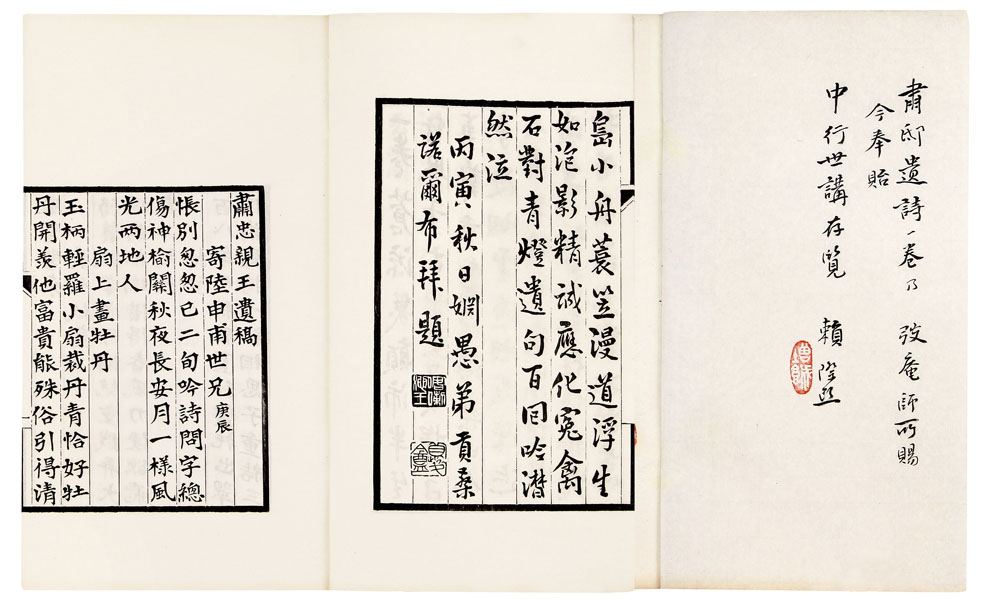 肅邸遺詩一卷乃 弢庵師所賜
今奉貽
中行世講存覽 賴際熙
島小舟蓑笠漫道浮生
如泡影精誠應化冤禽
石對青燈遺句百囘吟潸
然泣
丙寅秋日姻愚弟貢桑
諾爾布拜題
肅忠親王遺稿
寄陸申甫世兄庚辰
悵別怱怱已二旬吟詩問字總
傷神榆關秋夜長安月一樣風
光兩地人
扇上畫牡丹
玉柄輕羅小扇裁丹青恰好牡
丹開羨他富貴能殊俗引得清